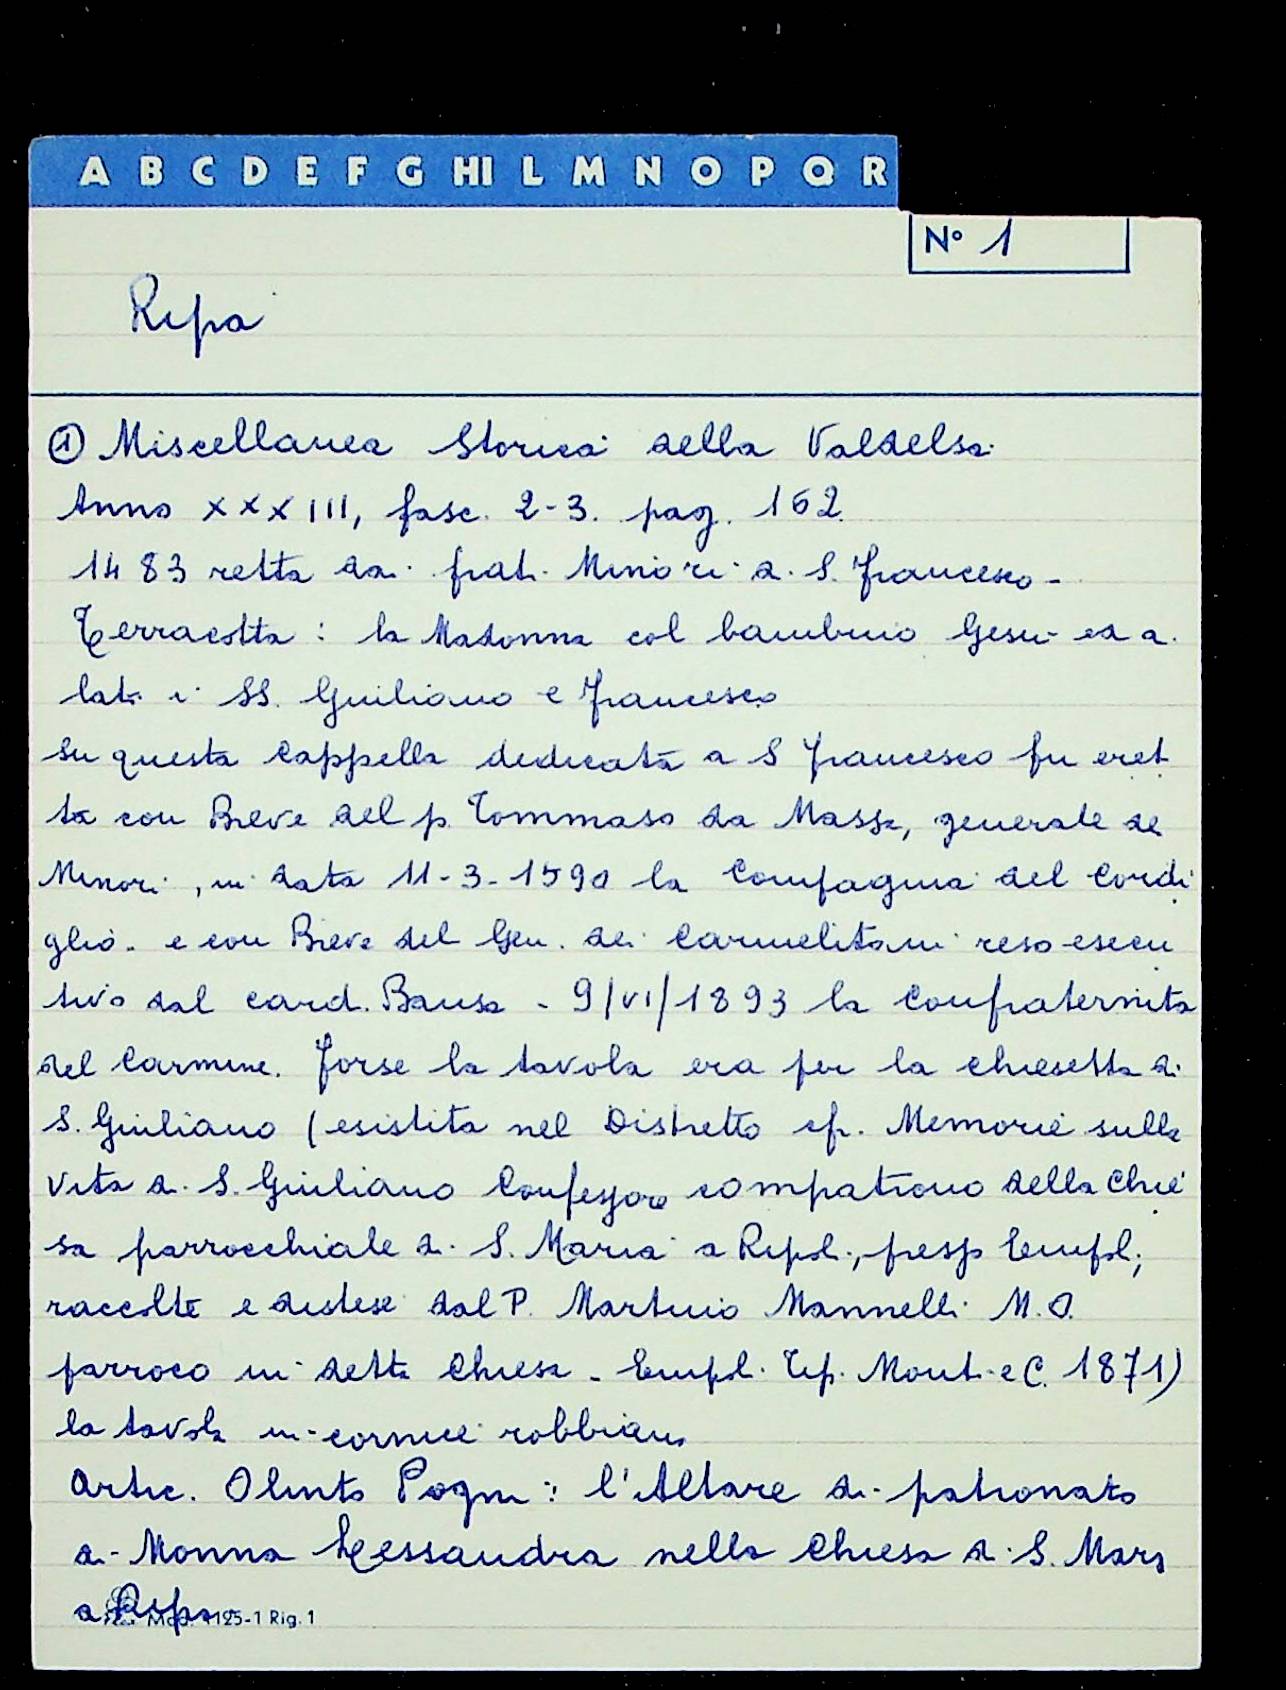 A B C D E F G HI L M N O P Q R
N° 1
Ripa
① Miscellanea Storica della Valdelsa
Anno XXXIII, fasc. 2-3. pag. 162
1483 retta dai frati Minori di S. Francesco -
Terracotta : la Madonna col bambino Gesù ed ai
lati i SS. Giuliano e Francesco
su questa Cappella dedicata a S Francesco fu eret
ta con Breve del p. Tommaso da Massa, generale de
Minori, in data 11-3-1590 la Compagnia del Cordi
glio - e con Breve del Gen. dei Carmelitani reso esecu
tivo dal card. Bausa - 9/VI/1893 la Confraternita
del Carmine. Forse la tavola era per la chiesetta di
S. Giuliano (esistita nel Distretto cfr. Memorie sulla
vita di S. Giuliano Confessore compatrono della Chie
sa parrocchiale di S. Maria a Ripoli, presso Empoli,
raccolte e distese dal P. Martino Mannelli M.O.
parroco in detta Chiesa - Empoli. Tip. Monti e C. 1871)
la tavola in cornice robbiana
Artic. Olinto Pogni : l'Altare di patronato
di Monna Lessandra nella Chiesa di S. Maria
a Ripa.
Mod. 1125-1 Rig. 1